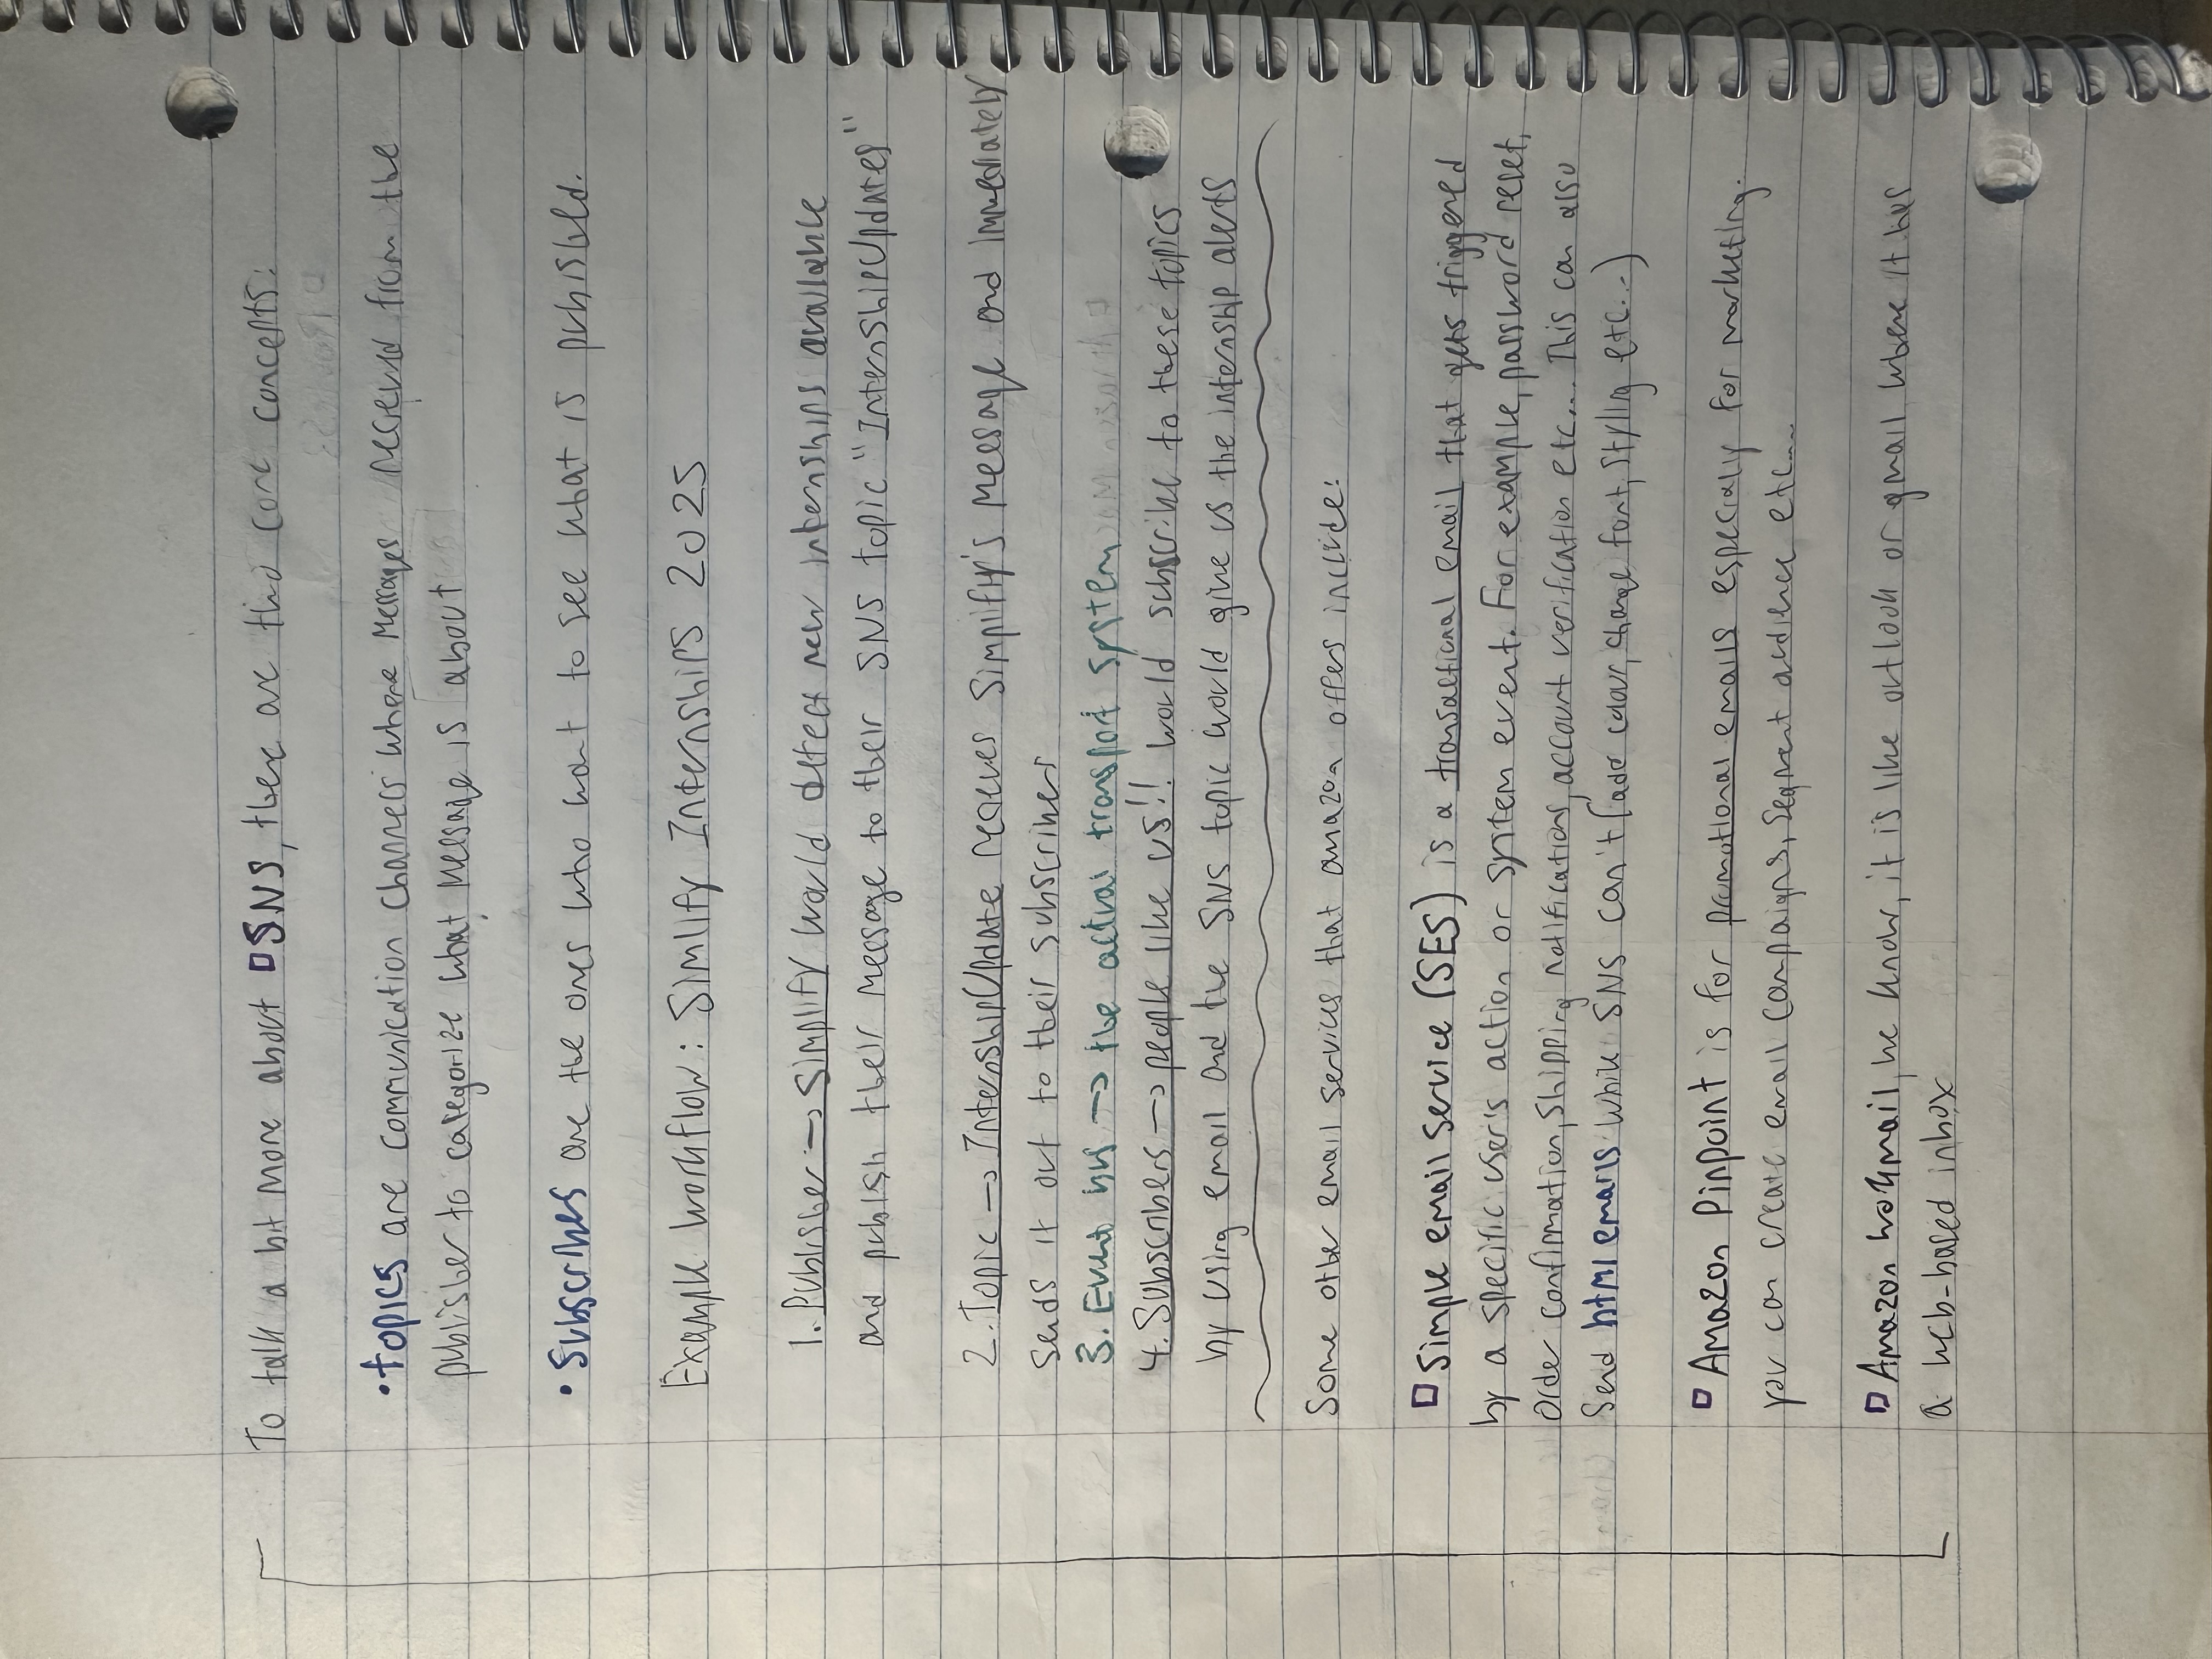 To talk a bit more about □SNS, there are two core concepts:
•topics are communication channels where messages recieved from the
publisher to categorize what message is about
•Subscribes are the ones who want to see what is published.
Example workflow: Simlify Internships 2025
1. Publisher → Simplify would detect new internships available
and publish their message to their SNS topic "InternshipUpdates"
2. Topic → InternshipUpdate recieves Simplify's message and immediately
sends it out to their subscribers
3. Event bus → the actual transport system
4. Subscribers → people like us!! would subscribe to these topics
by using email and the SNS topic would give us the internship alerts
Some other email services that amazon offers include:
□ Simple email service (SES) is a transactional email that gets triggered
by a specific user's action or system event. For example, password reset,
order confirmation, shipping notifications, account verification etc... This can also
send html emails while SNS can't (add colour, change font, styling etc...)
□ Amazon Pinpoint is for promotional emails especially for marketing.
you can create email campaigns, segment audience etc...
□ Amazon workmail, we know, it is like outlook or gmail where it has
a web-based inbox